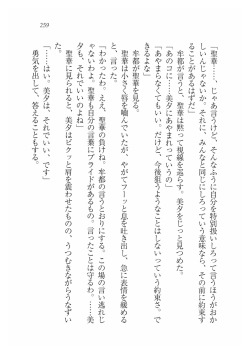 259
「聖華……、じゃあ言うけど、そんなふうに自分を特別扱いしろって言うほうがおか
しいんじゃないか。それに、みんなと同じにしろって意味なら、その前に約束す
ることがあるはずだ」
牟都が言うと、聖華は黙って視線を巡らす。美夕をじっと見つめた。
「あのコに……、美夕にあやまれっていうの」
「あやまらなくてもいい。だけど、今後狙うようなことはしないっていう約束さ。で
きるよな」
牟都が聖華を見る。
聖華は小さく唇を嚙んでいたが、やがてフーッと息を吐き出し、急に表情を緩める
と、言った。
「わかったわ。ええ、聖華の負けね。牟都の言うとおりにする。この場の言い逃れじ
ゃないわよ。聖華も自分の言葉にプライドがあるもの。言ったことは守るわ。……美
夕も、それでいいのよね」
聖華に見られると、美夕はビクッと肩を震わせたものの、うつむきながらうなずい
た。
「……はい。美夕は、それでいい、です」
勇気を出して、答えることもする。